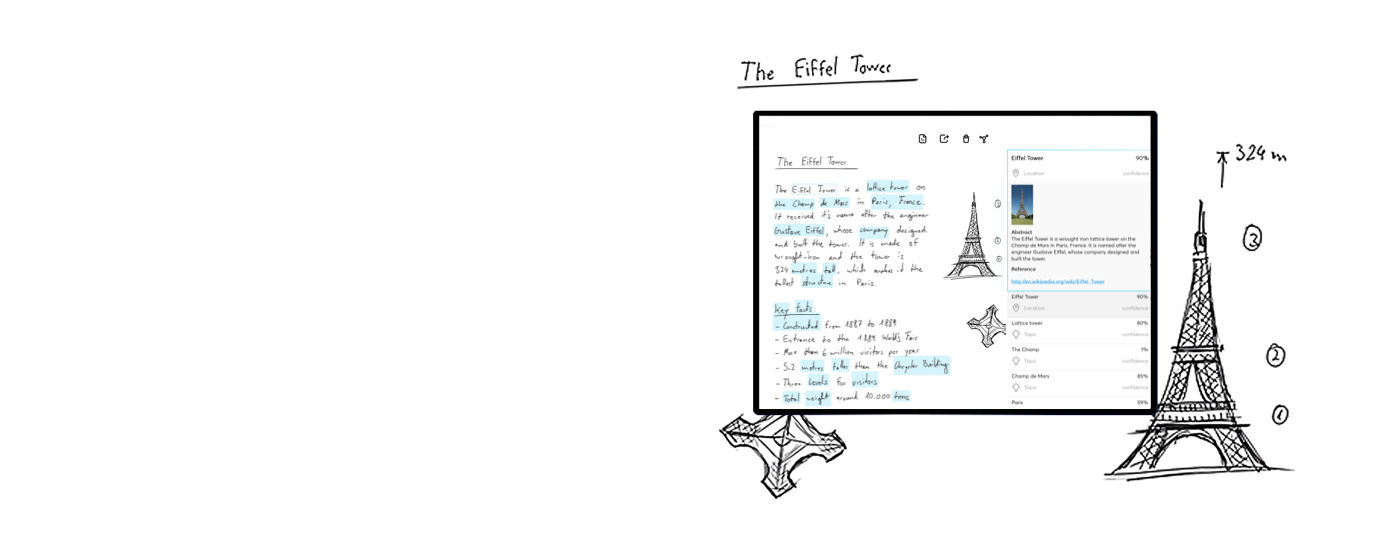 The Eiffel Tower
324 m
3
2
1
The Eiffel Tower
The Eiffel Tower is a lattice tower on
the Champ de Mars in Paris, France.
It received it's name after the engineer
Gustave Eiffel, whose company designed
and built the tower. It is made of
wrought-iron and the tower is
324 metres tall, which makes it the
tallest structure in Paris.
Key facts:
- Constructed from 1887 to 1889
- Entrance to the 1889 World's Fair
- More than 6 million visitors per year
- 5.2 metres taller than the Chrysler Building
- Three levels for visitors
- Total weight around 10.000 tons
3
2
1
Eiffel Tower 90%
Location confidence
Abstract
The Eiffel Tower is a wrought iron lattice tower on the
Champ de Mars in Paris, France. It is named after the
engineer Gustave Eiffel, whose company designed and
built the tower.
Reference
http://en.wikipedia.org/wiki/Eiffel_Tower
Eiffel Tower 90%
Location confidence
Lattice tower 80%
Topic confidence
The Champ 1%
Topic confidence
Champ de Mars 85%
Topic confidence
Paris 59%